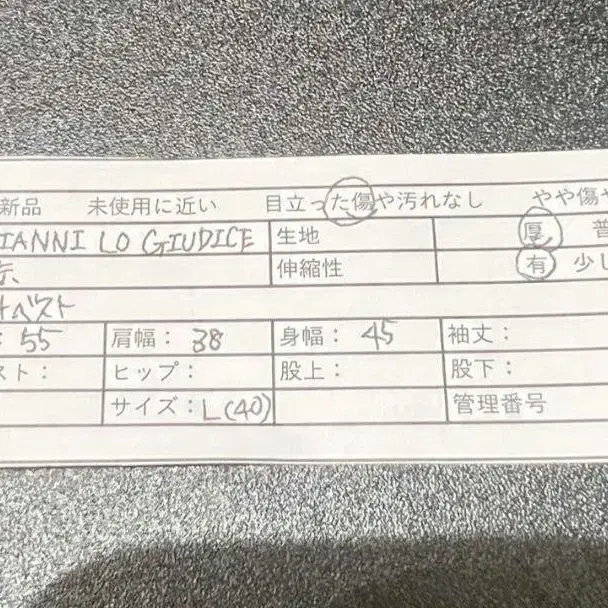 新品 未使用に近い 目立った傷や汚れなし やや傷や
IANNI LO GIUDICE 生地 厚 普
伸縮性 有 少し
ベスト
: 55 肩幅： 38 身幅： 45 袖丈：
スト： ヒップ： 股上： 股下：
サイズ：L(40) 管理番号